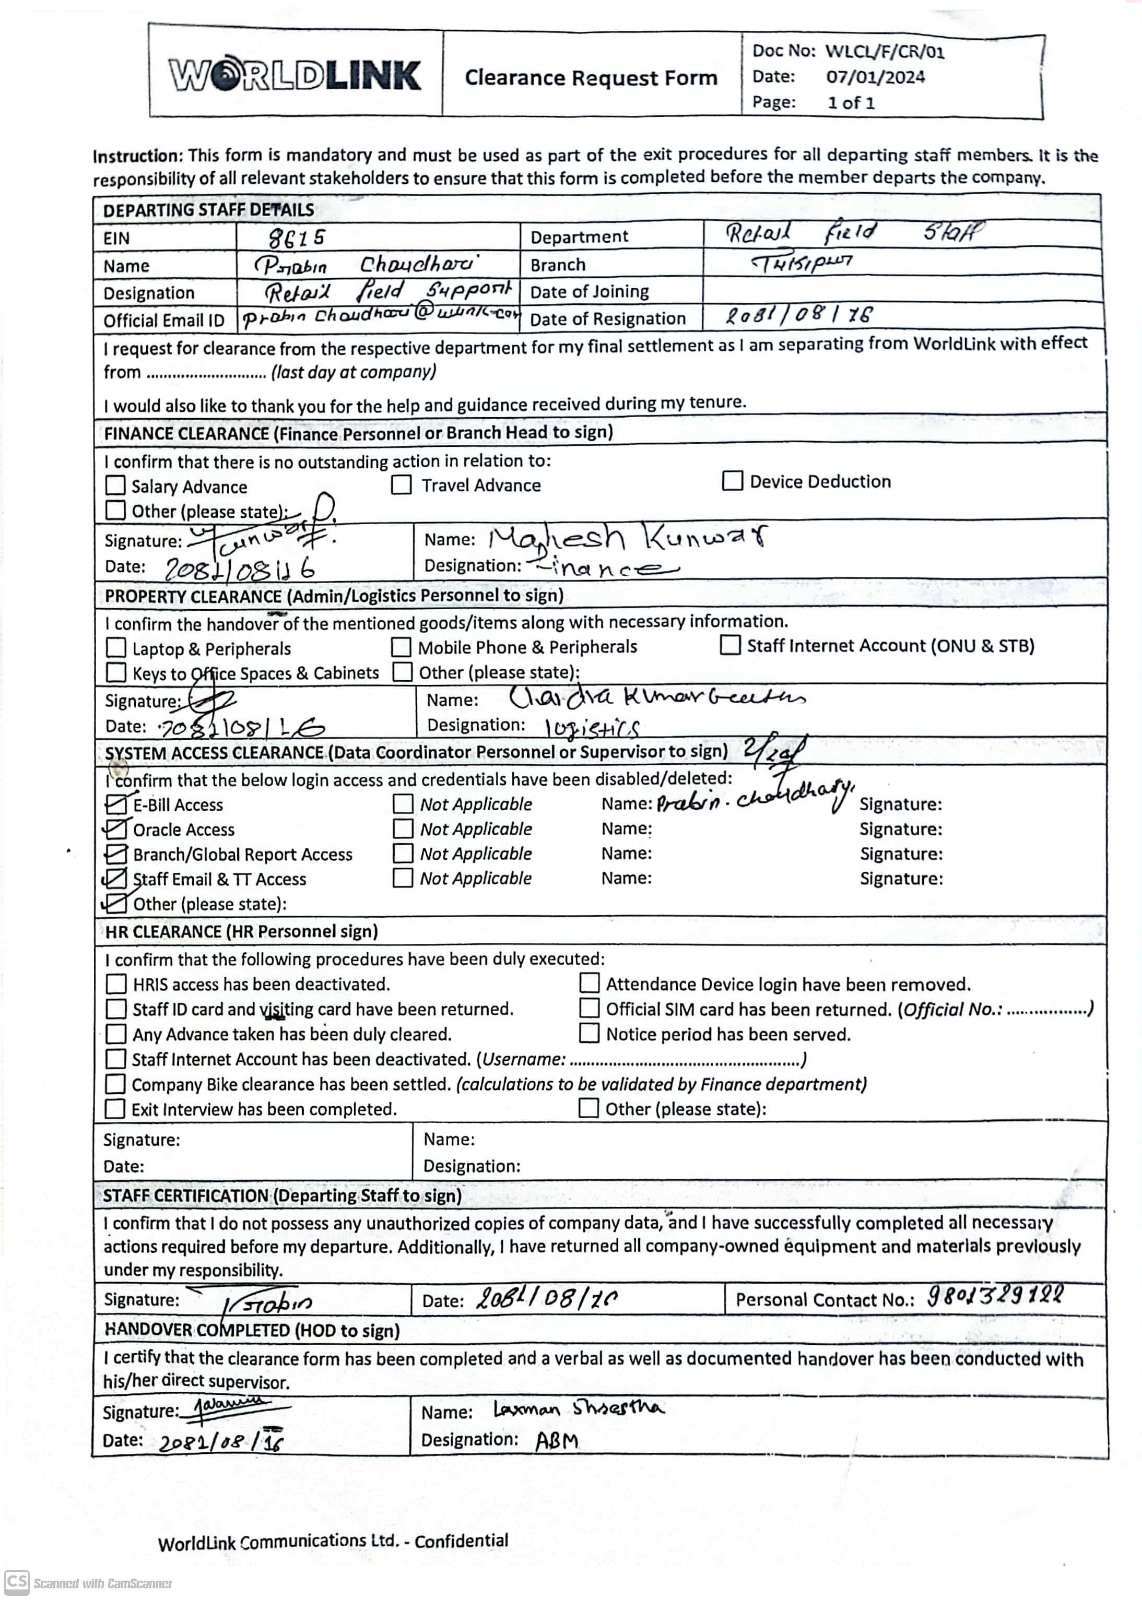 WORLDLINK
Clearance Request Form
Doc No: WLCL/F/CR/01
Date: 07/01/2024
Page: 1 of 1
Instruction: This form is mandatory and must be used as part of the exit procedures for all departing staff members. It is the
responsibility of all relevant stakeholders to ensure that this form is completed before the member departs the company.
DEPARTING STAFF DETAILS
EIN 8615 Department Retail field Staff
Name Prabin Chaudhari Branch Tulsipur
Designation Retail field Support Date of Joining
Official Email ID Date of Resignation 2081/08/16
I request for clearance from the respective department for my final settlement as I am separating from WorldLink with effect
from ............................ (last day at company)
I would also like to thank you for the help and guidance received during my tenure.
FINANCE CLEARANCE (Finance Personnel or Branch Head to sign)
I confirm that there is no outstanding action in relation to:
Salary Advance Travel Advance Device Deduction
Other (please state):
Signature: Name: Mahesh Kunwar
Date: 2081/08/16 Designation: Finance
PROPERTY CLEARANCE (Admin/Logistics Personnel to sign)
I confirm the handover of the mentioned goods/items along with necessary information.
Laptop & Peripherals Mobile Phone & Peripherals Staff Internet Account (ONU & STB)
Keys to Office Spaces & Cabinets Other (please state):
Signature: Name: Chandra Kumar
Date: 2081/08/16 Designation: logistics
SYSTEM ACCESS CLEARANCE (Data Coordinator Personnel or Supervisor to sign)
I confirm that the below login access and credentials have been disabled/deleted:
E-Bill Access Not Applicable Name: Prabin. Choudhary Signature:
Oracle Access Not Applicable Name: Signature:
Branch/Global Report Access Not Applicable Name: Signature:
Staff Email & TT Access Not Applicable Name: Signature:
Other (please state):
HR CLEARANCE (HR Personnel sign)
I confirm that the following procedures have been duly executed:
HRIS access has been deactivated. Attendance Device login have been removed.
Staff ID card and visiting card have been returned. Official SIM card has been returned. (Official No.: .................)
Any Advance taken has been duly cleared. Notice period has been served.
Staff Internet Account has been deactivated. (Username: .................................................)
Company Bike clearance has been settled. (calculations to be validated by Finance department)
Exit Interview has been completed. Other (please state):
Signature: Name:
Date: Designation:
STAFF CERTIFICATION (Departing Staff to sign)
I confirm that I do not possess any unauthorized copies of company data, and I have successfully completed all necessary
actions required before my departure. Additionally, I have returned all company-owned equipment and materials previously
under my responsibility.
Signature: Prabin Date: 2081/08/16 Personal Contact No.: 9801329122
HANDOVER COMPLETED (HOD to sign)
I certify that the clearance form has been completed and a verbal as well as documented handover has been conducted with
his/her direct supervisor.
Signature: Name: Laxman Shrestha
Date: 2081/08/16 Designation: ABM
WorldLink Communications Ltd. - Confidential
CS Scanned with CamScanner